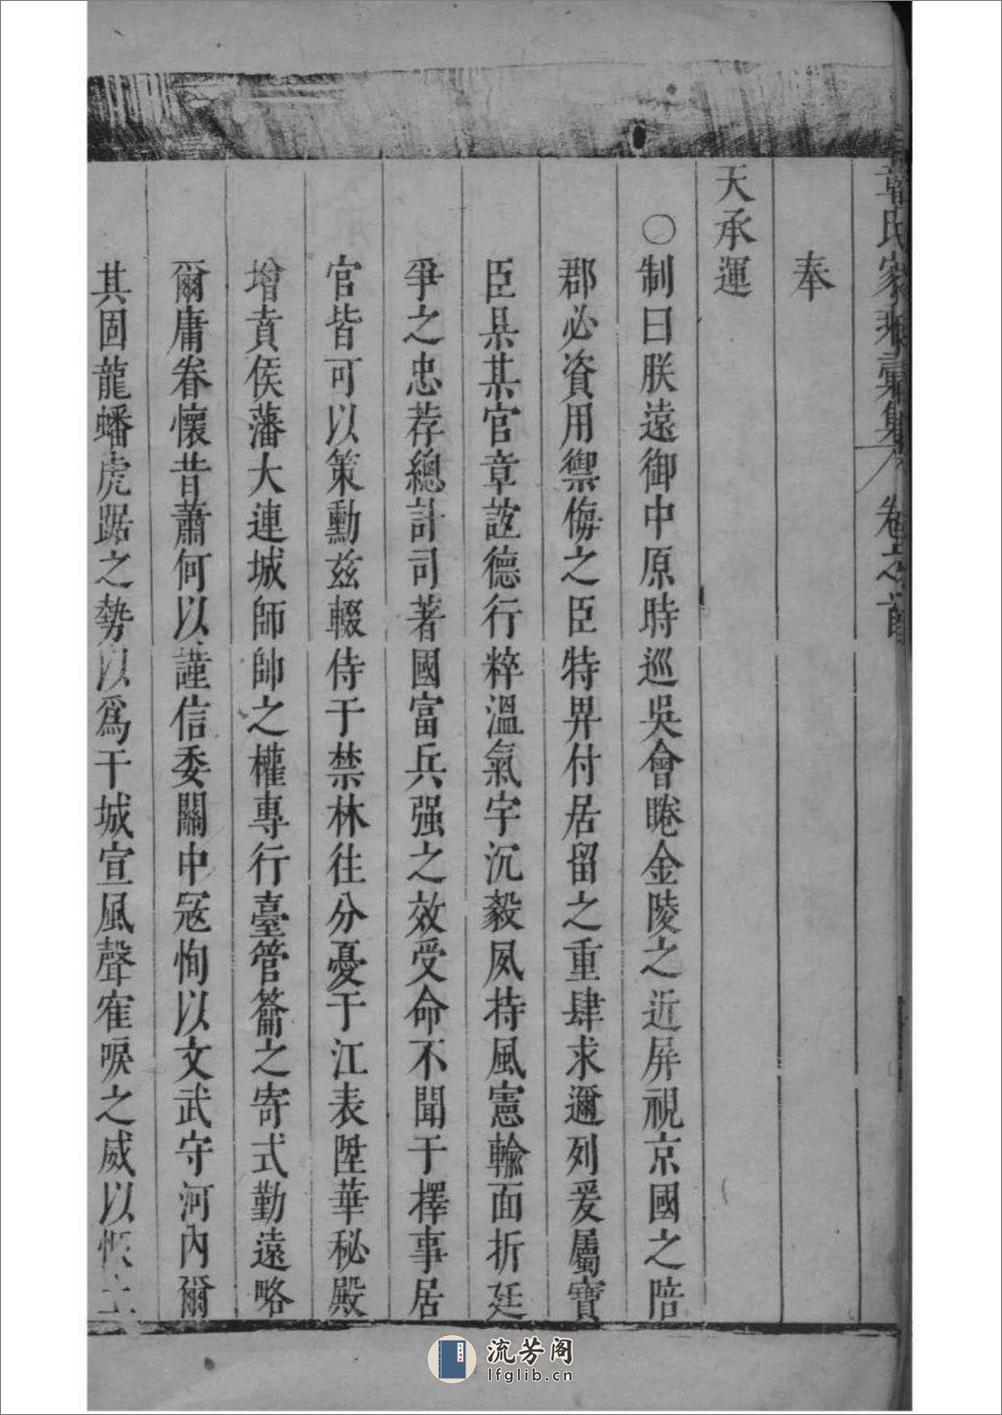 章氏家乘彙集 卷之首
奉
天承運
○制曰朕遠御中原時巡吳會睠金陵之近屏視京國之陪
郡必資用禦侮之臣特畀付居留之重肆求邇列爰屬寶
臣具某官章誼德行粹溫氣宇沉毅夙持風憲輸面折廷
爭之忠荐總計司著國富兵强之效受命不聞于擇事居
官皆可以策勳茲輟侍于禁林往分憂于江表陞華秘殿
增賁侯藩大連城師帥之權專行臺管籥之寄式勤遠略
爾庸眷懷昔蕭何以謹信委關中寇恂以文武守河內爾
其固龍蟠虎踞之勢以爲干城宣風聲寉唳之威以
流芳阁
lfglib.cn